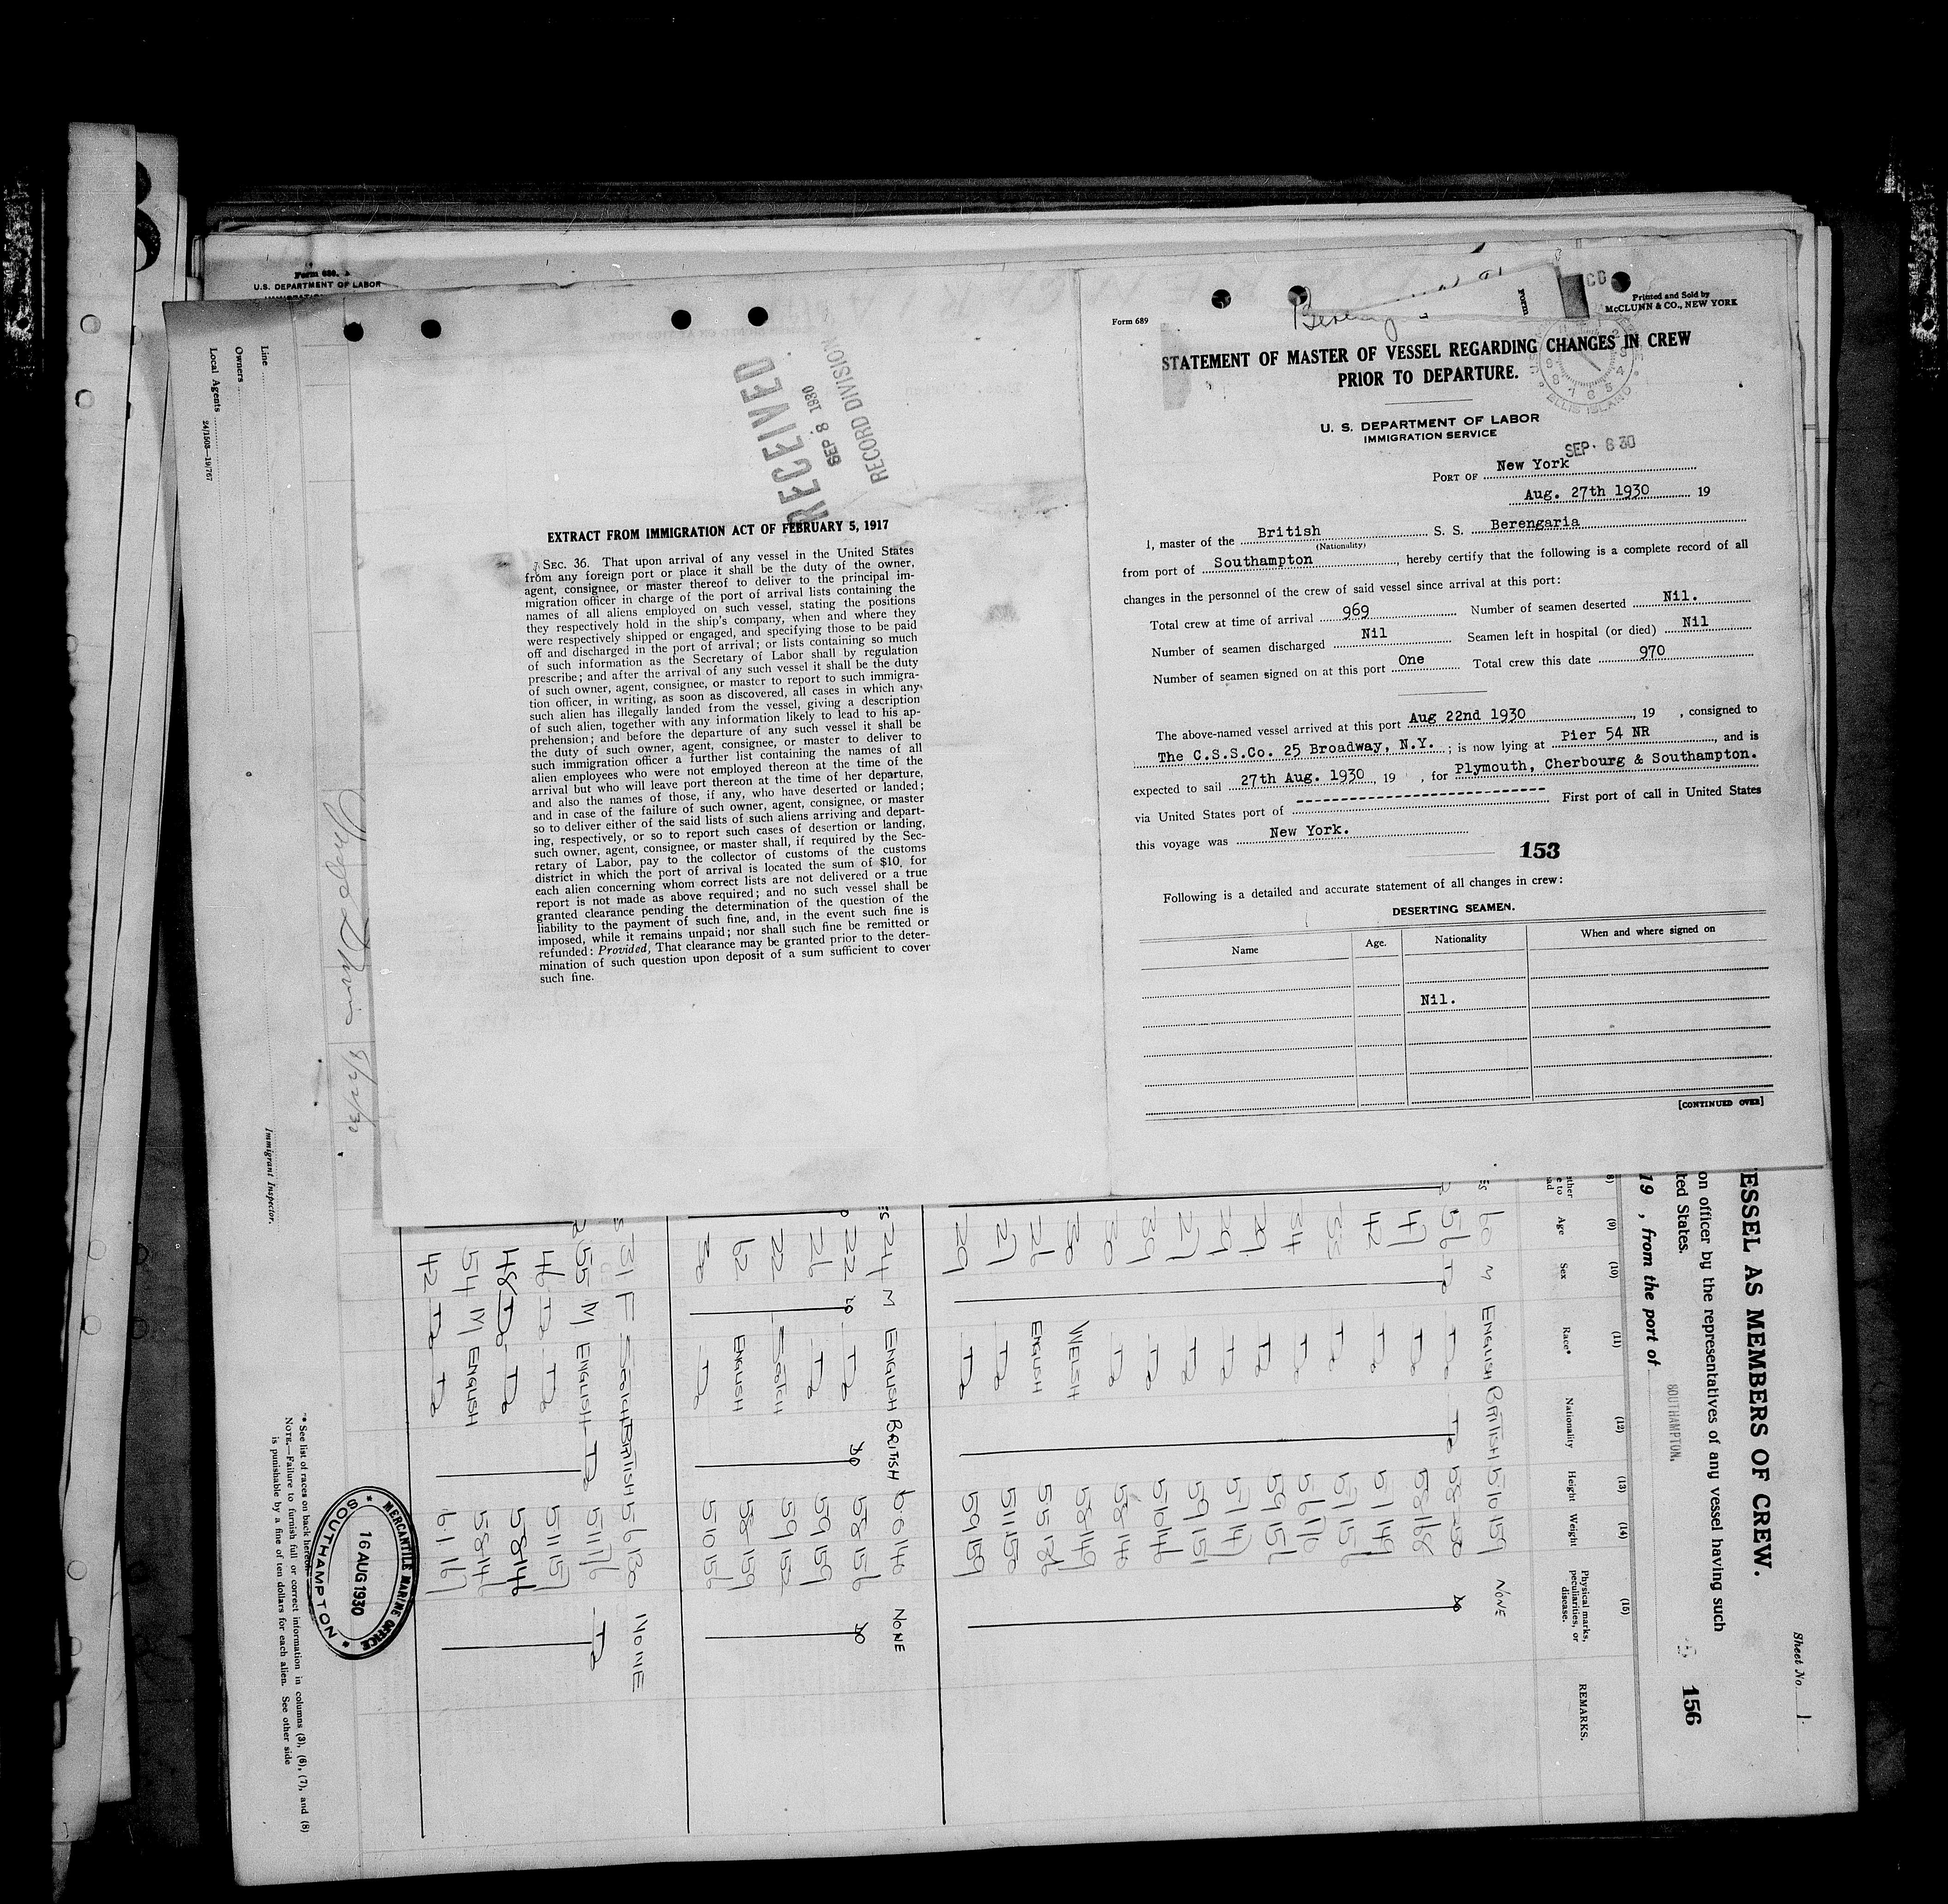 Form 689
Printed and Sold by
McCLUNN & CO., NEW YORK
STATEMENT OF MASTER OF VESSEL REGARDING CHANGES IN CREW
PRIOR TO DEPARTURE.
ELLIS ISLAND
U. S. DEPARTMENT OF LABOR
IMMIGRATION SERVICE
SEP 6 30
PORT OF New York
Aug. 27th 1930 19
I, master of the British S. S. Berengaria
(Nationality)
from port of Southampton, hereby certify that the following is a complete record of all
changes in the personnel of the crew of said vessel since arrival at this port:
Total crew at time of arrival 969 Number of seamen deserted Nil.
Number of seamen discharged Nil Seamen left in hospital (or died) Nil
Number of seamen signed on at this port One Total crew this date 970
The above-named vessel arrived at this port Aug 22nd 1930, 19 , consigned to
The C.S.S.Co. 25 Broadway, N.Y. ; is now lying at Pier 54 NR, and is
expected to sail 27th Aug. 1930, 19 , for Plymouth, Cherbourg & Southampton.
via United States port of ---------------------------- First port of call in United States
this voyage was New York.
153
Following is a detailed and accurate statement of all changes in crew:
DESERTING SEAMEN.
Name Age. Nationality When and where signed on
Nil.
[CONTINUED OVER]
RECEIVED
SEP 8 1930
RECORD DIVISION
EXTRACT FROM IMMIGRATION ACT OF FEBRUARY 5, 1917
SEC. 36. That upon arrival of any vessel in the United States
from any foreign port or place it shall be the duty of the owner,
agent, consignee, or master thereof to deliver to the principal im-
migration officer in charge of the port of arrival lists containing the
names of all aliens employed on such vessel, stating the positions
they respectively hold in the ship's company, when and where they
were respectively shipped or engaged, and specifying those to be paid
off and discharged in the port of arrival; or lists containing so much
of such information as the Secretary of Labor shall by regulation
prescribe; and after the arrival of any such vessel it shall be the duty
of such owner, agent, consignee, or master to report to such immigra-
tion officer, in writing, as soon as discovered, all cases in which any
such alien has illegally landed from the vessel, giving a description
of such alien, together with any information likely to lead to his ap-
prehension; and before the departure of any such vessel it shall be
the duty of such owner, agent, consignee, or master to deliver to
such immigration officer a further list containing the names of all
alien employees who were not employed thereon at the time of the
arrival but who will leave port thereon at the time of her departure,
and also the names of those, if any, who have deserted or landed;
and in case of the failure of such owner, agent, consignee, or master
so to deliver either of the said lists of such aliens arriving and depart-
ing, respectively, or so to report such cases of desertion or landing,
such owner, agent, consignee, or master shall, if required by the Sec-
retary of Labor, pay to the collector of customs of the customs
district in which the port of arrival is located the sum of $10, for
each alien concerning whom correct lists are not delivered or a true
report is not made as above required; and no such vessel shall be
granted clearance pending the determination of the question of the
liability to the payment of such fine, and, in the event such fine is
imposed, while it remains unpaid; nor shall such fine be remitted or
refunded: Provided, That clearance may be granted prior to the deter-
mination of such question upon deposit of a sum sufficient to cover
such fine.
Form 680.
U.S. DEPARTMENT OF LABOR
Line
Owners
Local Agents
24/1508—19/767
8/22/30
Immigrant Inspector.
Sheet No. 1.
ESSEL AS MEMBERS OF CREW.
on officer by the representatives of any vessel having such
ted States.
19 , from the port of SOUTHAMPTON.
156
(9) (10) (11) (12) (13) (14) (15)
Age Sex Race* Nationality Height Weight Physical marks, peculiarities, or disease. REMARKS.
60 M ENGLISH BRITISH 5 10 159 NONE
56 Do Do Do
47 Do
42 Do
33 Do
34 Do
29 Do
29 Do
27 Do
39 Do
30 Do
WELSH
26 ENGLISH
27 Do
29 Do 5 9 159
24 M ENGLISH BRITISH 6 0 146 NONE
22 Do Do Do 5 8 156 Do
26 Do 5 9 159
22 SCOTCH 5 9 152
62 ENGLISH 5 8 159
Do 5 10 156
31 F SCOTCH BRITISH 5 6 130 NONE
55 M ENGLISH Do 5 11 Do
46 Do Do 5 11 157
48 Do Do 5 8 146
54 M ENGLISH 5 8 146
42 Do Do 6 1 167
MERCANTILE MARINE OFFICE
16 AUG 1930
SOUTHAMPTON
* See list of races on back hereof.
NOTE.—Failure to furnish full or correct information in columns (3), (6), (7), and (8)
is punishable by a fine of ten dollars for each alien. See other side